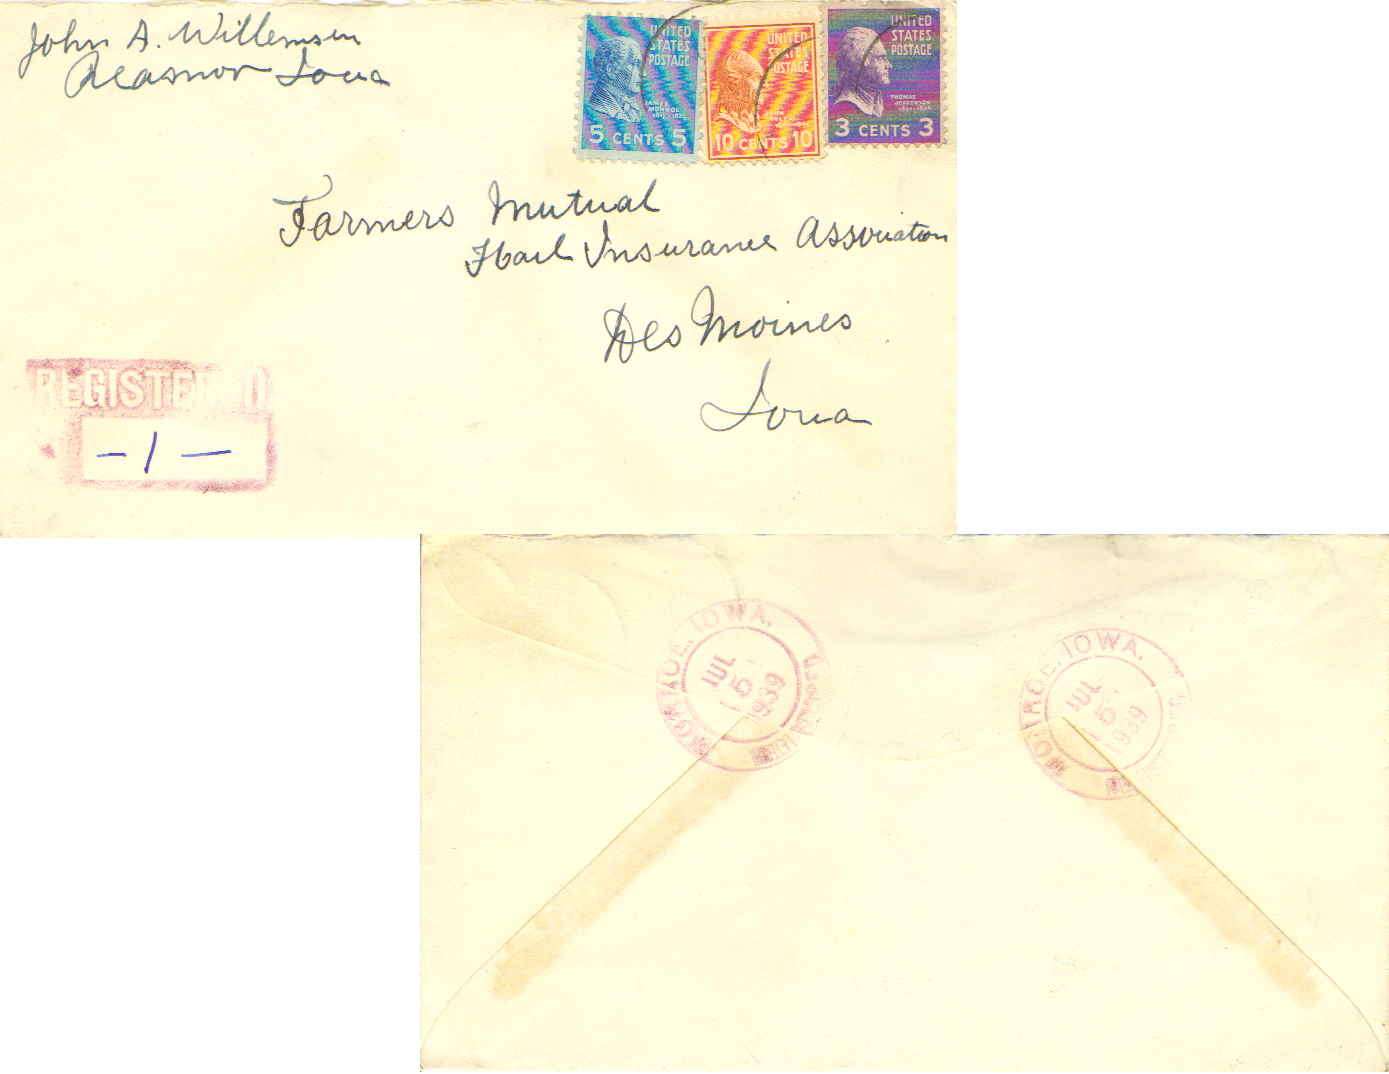 John A. Willemsen
Reasnor Iowa
UNITED
STATES
POSTAGE
JAMES
MONROE
5 CENTS 5
UNITED
STATES
POSTAGE
JOHN
10 CENTS 10
UNITED
STATES
POSTAGE
THOMAS
JEFFERSON
3 CENTS 3
Farmers Mutual
Hail Insurance Association
Des Moines
Iowa
REGISTERED
- 1 -
MONROE, IOWA.
JUL
5
1939
MONROE, IOWA.
JUL
5
1939